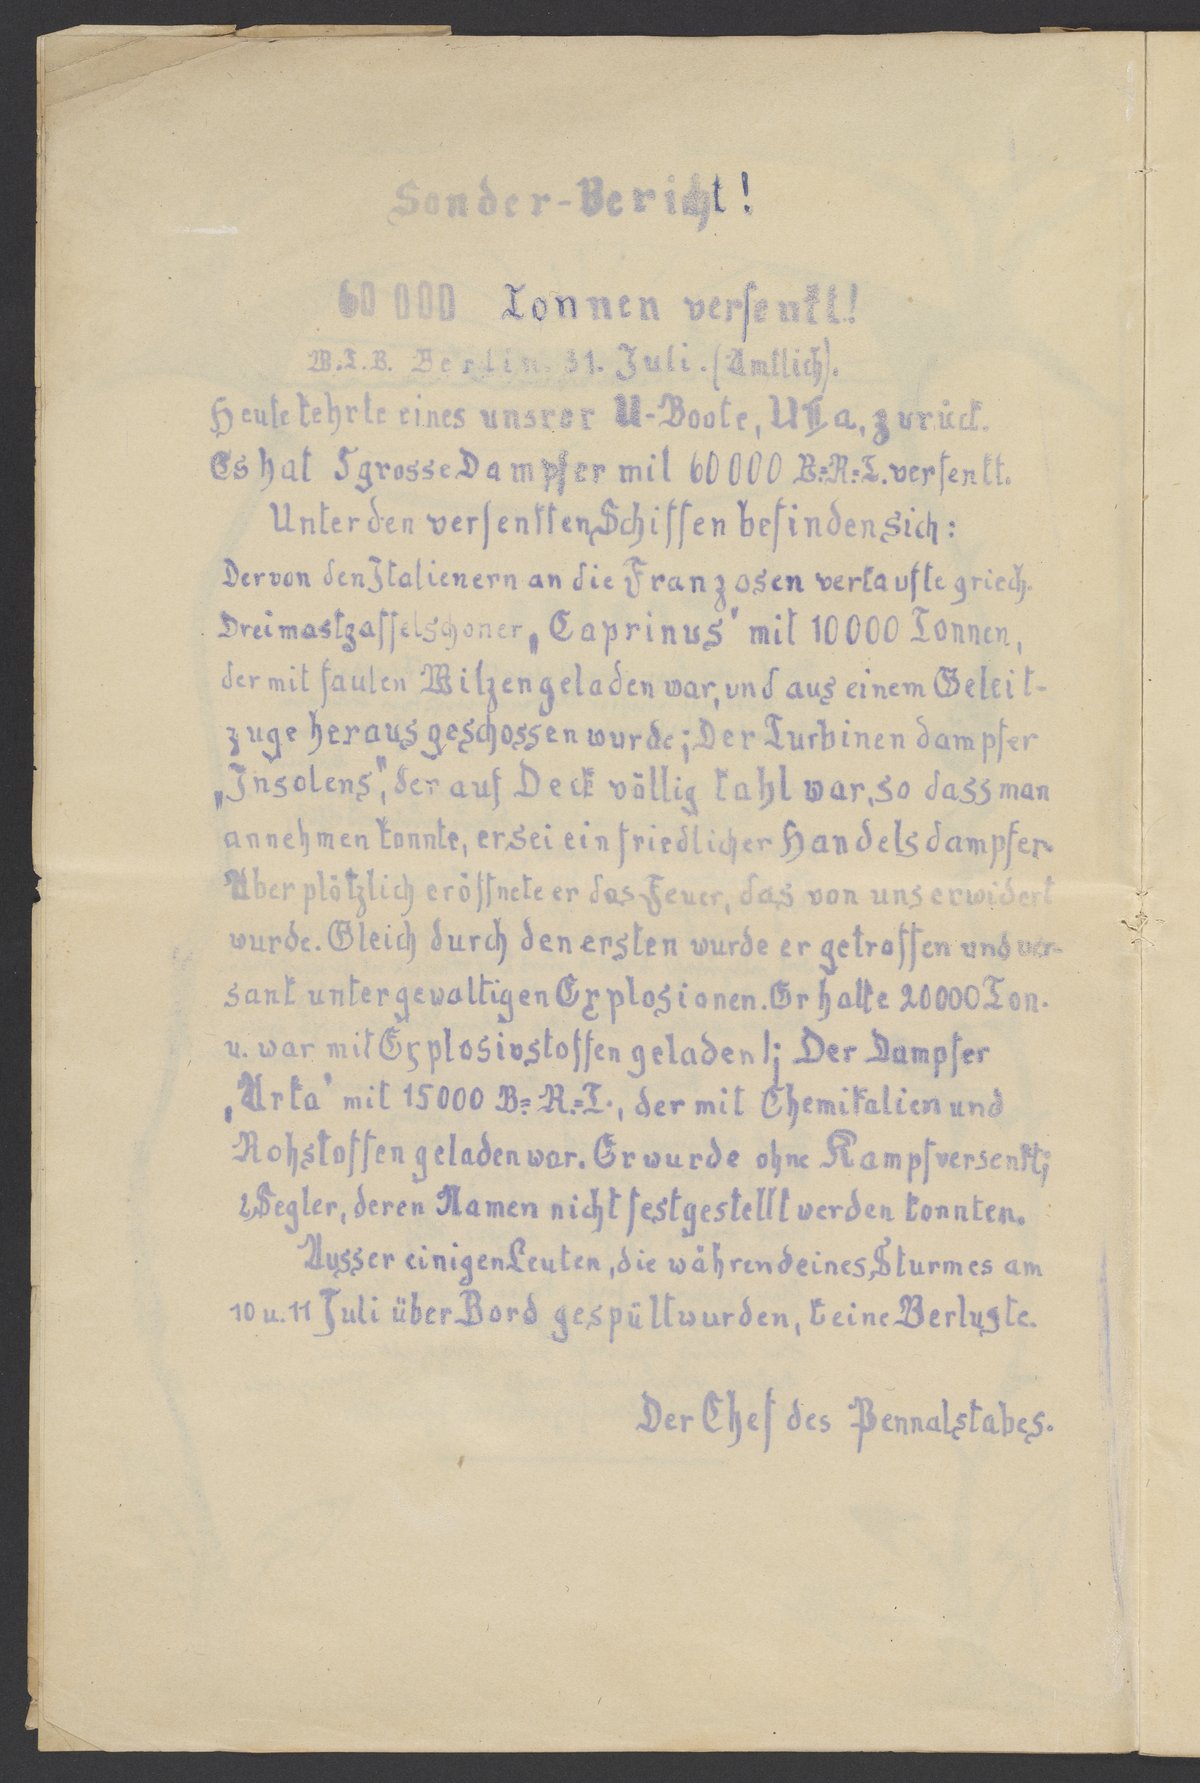 Sonder-Bericht!
60 000 Tonnen versenkt!
W.T.B. Berlin. 31. Juli. (Amtlich).
Heute kehrte eines unsrer U-Boote, zurück.
Es hat 5 grosse Dampfer mit 60000 B.=R.=T. versenkt.
Unter den versenkten Schiffen befinden sich:
Der von den Italienern an die Franzosen verkaufte griech.
Dreimastgaffelschoner „Caprinus" mit 10000 Tonnen,
der mit faulen Witzen geladen war, und aus einem Geleit-
zuge herausgeschossen wurde; Der Turbinendampfer
„Insolens", der auf Deck völlig kahl war, so dass man
annehmen konnte, er sei ein friedlicher Handelsdampfer.
Aber plötzlich eröffnete er das Feuer, das von uns erwidert
wurde. Gleich durch den ersten wurde er getroffen und ver-
sank unter gewaltigen Explosionen. Er hatte 20000 Ton.
u. war mit Explosivstoffen geladen!; Der Dampfer
„Urka" mit 15000 B.=R.=T., der mit Chemikalien und
Rohstoffen geladen war. Er wurde ohne Kampf versenkt;
2 Segler, deren Namen nicht festgestellt werden konnten.
Ausser einigen Leuten, die während eines Sturmes am
10 u. 11 Juli über Bord gespült wurden, keine Verluste.
Der Chef des Pennalstabes.